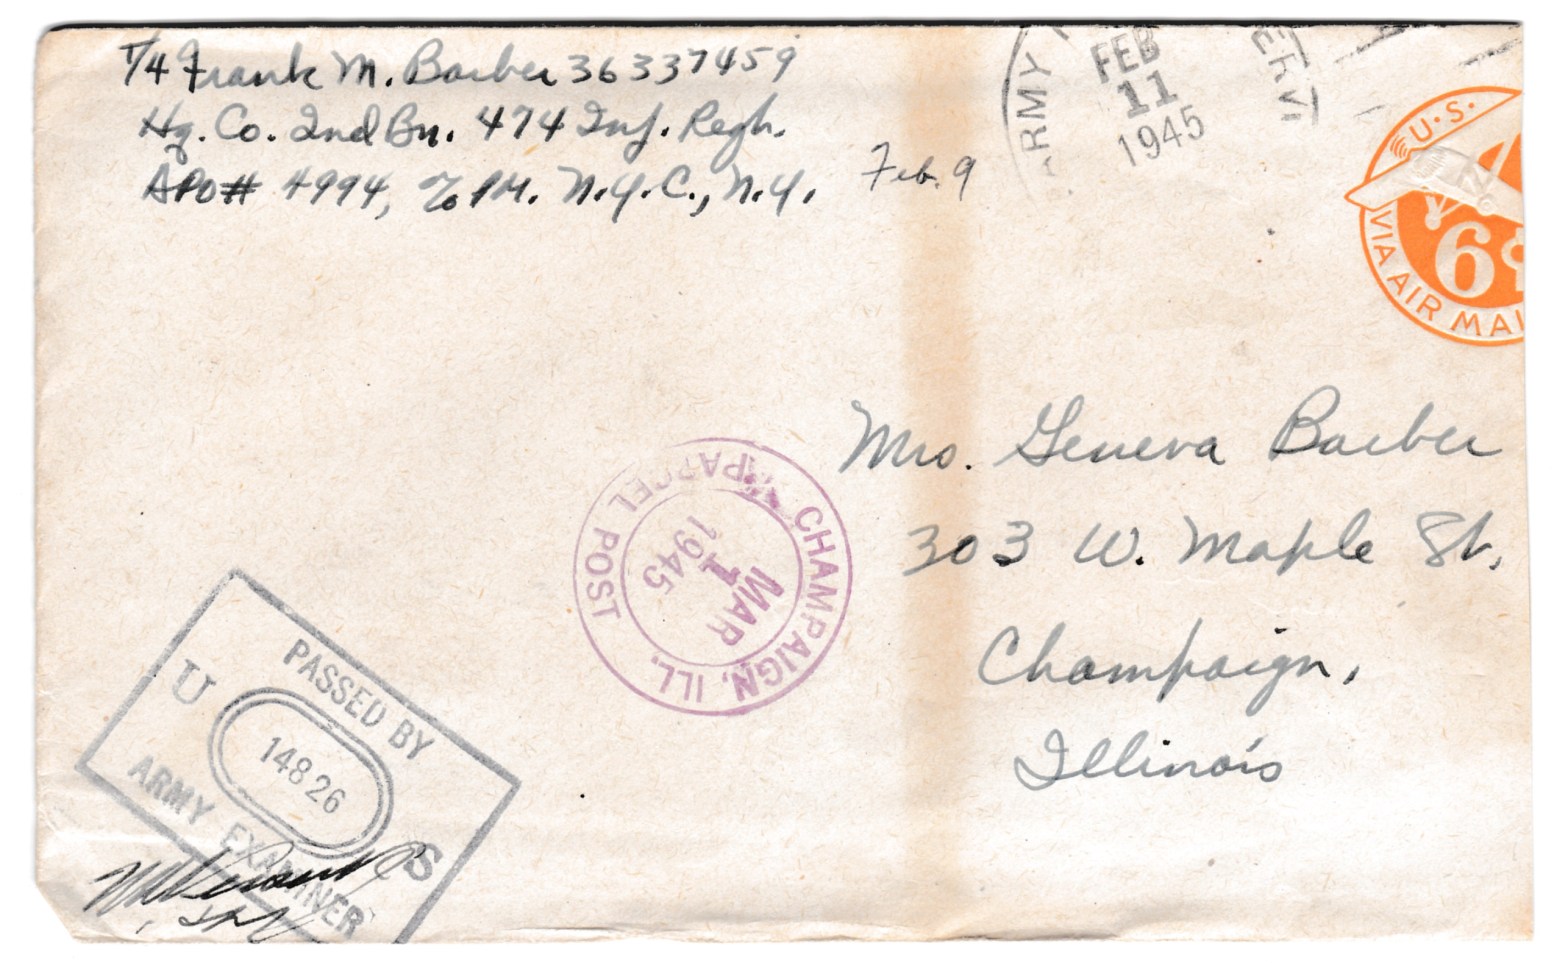 T/4 Frank M. Barber 36337459
Hq. Co. 2nd Bn. 474 Inf. Regt.
APO# 4994, c/o PM. N.Y.C., N.Y.
Feb. 9
ARMY
FEB
11
1945
U.S.
6¢
VIA AIR MAI
Mrs. Geneva Barber
303 W. Maple St,
Champaign,
Illinois
CHAMPAIGN, ILL.
PARCEL POST
MAR
1
1945
PASSED BY
U S
14826
ARMY EXAMINER